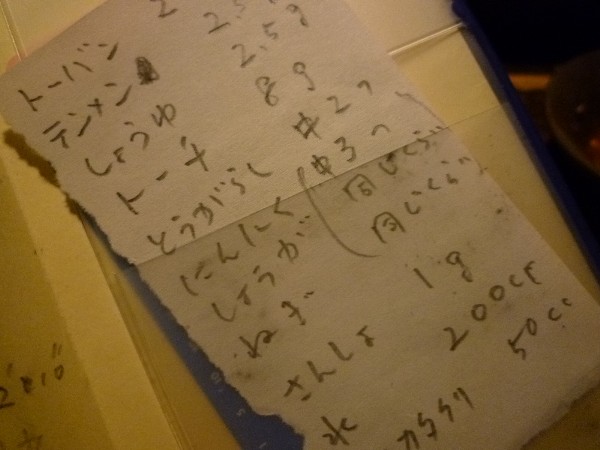 トーバン 2.5g
テンメン 2.5g
しょうゆ 8g
トーチ 中2つ
とうがらし 中3つ
にんにく 同じくらい
しょうが 同じくらい
ねぎ
さんしょ 1g
水 200cc
50cc